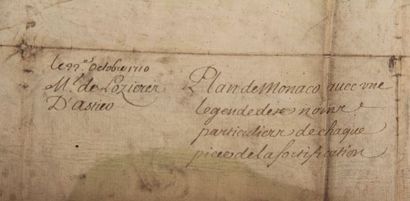 le 22e octobre 1710
Mr. de Lozieres
D'astier
Plan de Monaco avec vne
legende des noms
particuliers de chaque
piece de la fortification